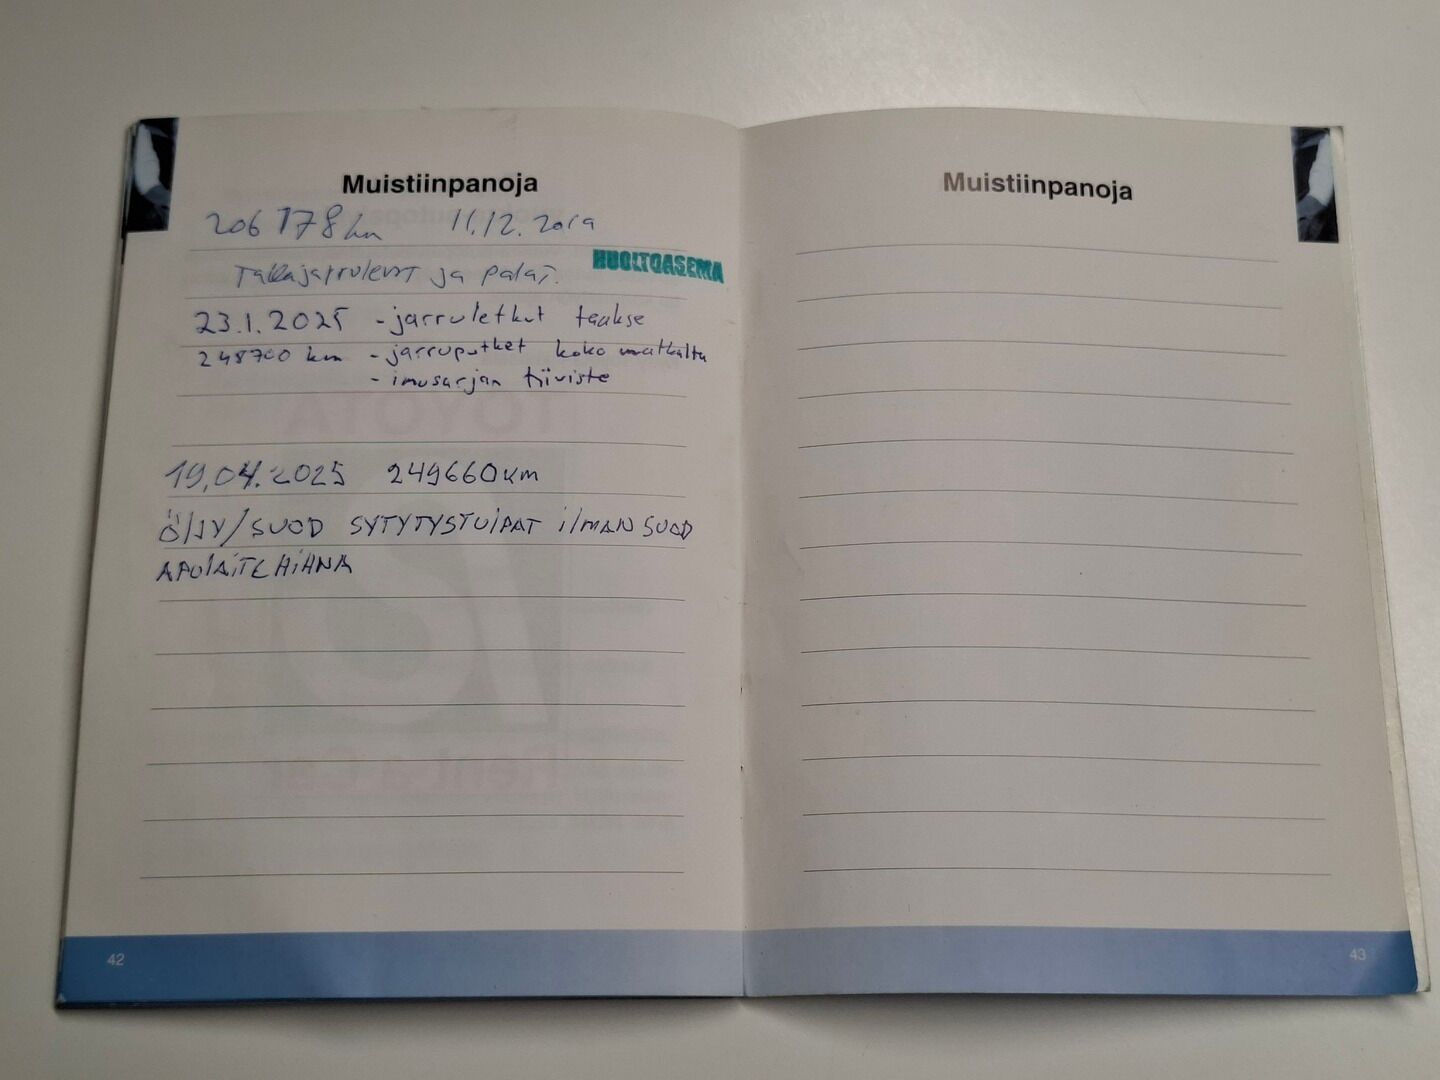 Muistiinpanoja
206 178 km 11.12.2019
Takajarrulevyt ja palat.
HUOLTOASEMA
23.1.2025 - jarruletkut taakse
248700 km - jarruputket koko matkalta
- imusarjan tiiviste
19.04.2025 249660km
ÖljY/SUOD SYTYTYSTULPAT ilMAN SUOD
APULAITEHIHNA
42
Muistiinpanoja
43
TOYOTA
Rent a Car